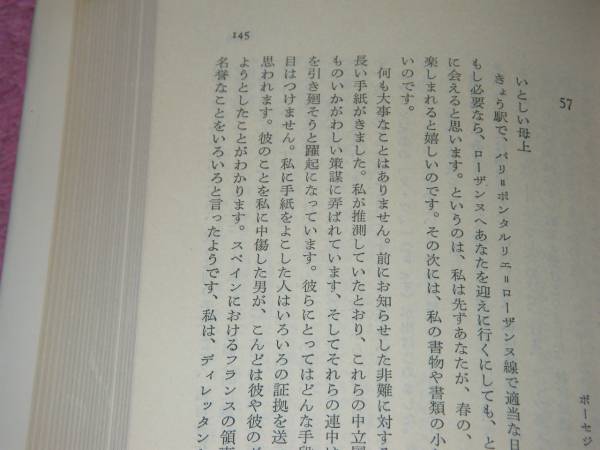 145
57
ボーセジ
いとしい母上
きょう駅で、パリ＝ポンタルリエ＝ローザンヌ線で適当な日
もし必要なら、ローザンヌへあなたを迎えに行くにしても、と
に会えると思います。というのは、私は先ずあなたが、春の、
楽しまれると嬉しいのです。その次には、私の書物や書類の小
いのです。
何も大事なことはありません。前にお知らせした非難に対する
長い手紙がきました。私が推測していたとおり、これらの中立国
ものいかがわしい策謀に弄ばれています、そしてそれらの連中は
を引き廻そうと躍起になっています。彼らにとってはどんな手段
目はつけません。私に手紙をよこした人はいろいろの証拠を送
思われます。彼のことを私に中傷した男が、こんどは彼や彼の
ようとしたことがわかります。スペインにおけるフランスの領事
名誉なことをいろいろと言ったようです、私は、ディレッタン